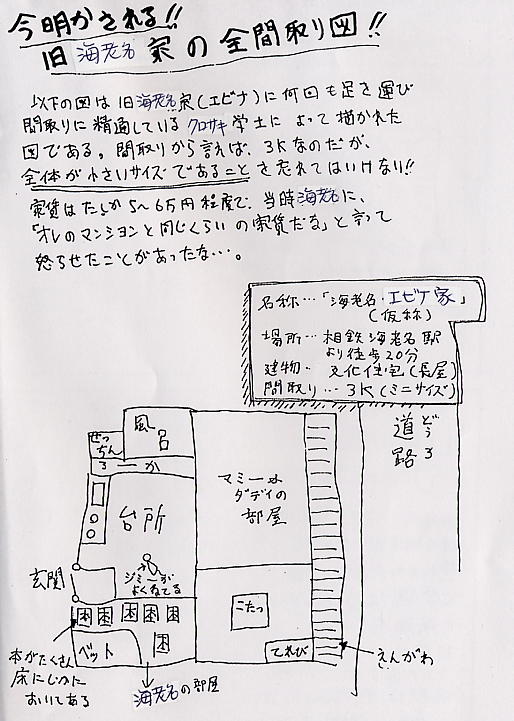 今明かされる!!
旧海老名家の全間取り図!!
以下の図は旧海老名家(エビナ)に何回も足を運び
間取りに精通しているクロサキ学士によって描かれた
図である。間取りから言えば、3Kなのだが、
全体が小さいサイズであることを忘れてはいけない!!
家賃はたしか5〜6万円程度で、当時海老名に、
「オレのマンションと同じくらいの家賃だな」と言って
怒らせたことがあったな…。
名称…「海老名・エビナ家」
(仮称)
場所…相鉄海老名駅
より徒歩20分
建物…文化住宅(長屋)
間取り…3K(ミニサイズ)
道路
どうろ
風呂
せっちん
ろーか
台所
マミーと
ダディの
部屋
玄関
ジミーが
よくねてる
本 本 本 本 本
本
こたつ
てれび
ベット
えんがわ
本がたくさん
床にじかに
おいてある
海老名の部屋